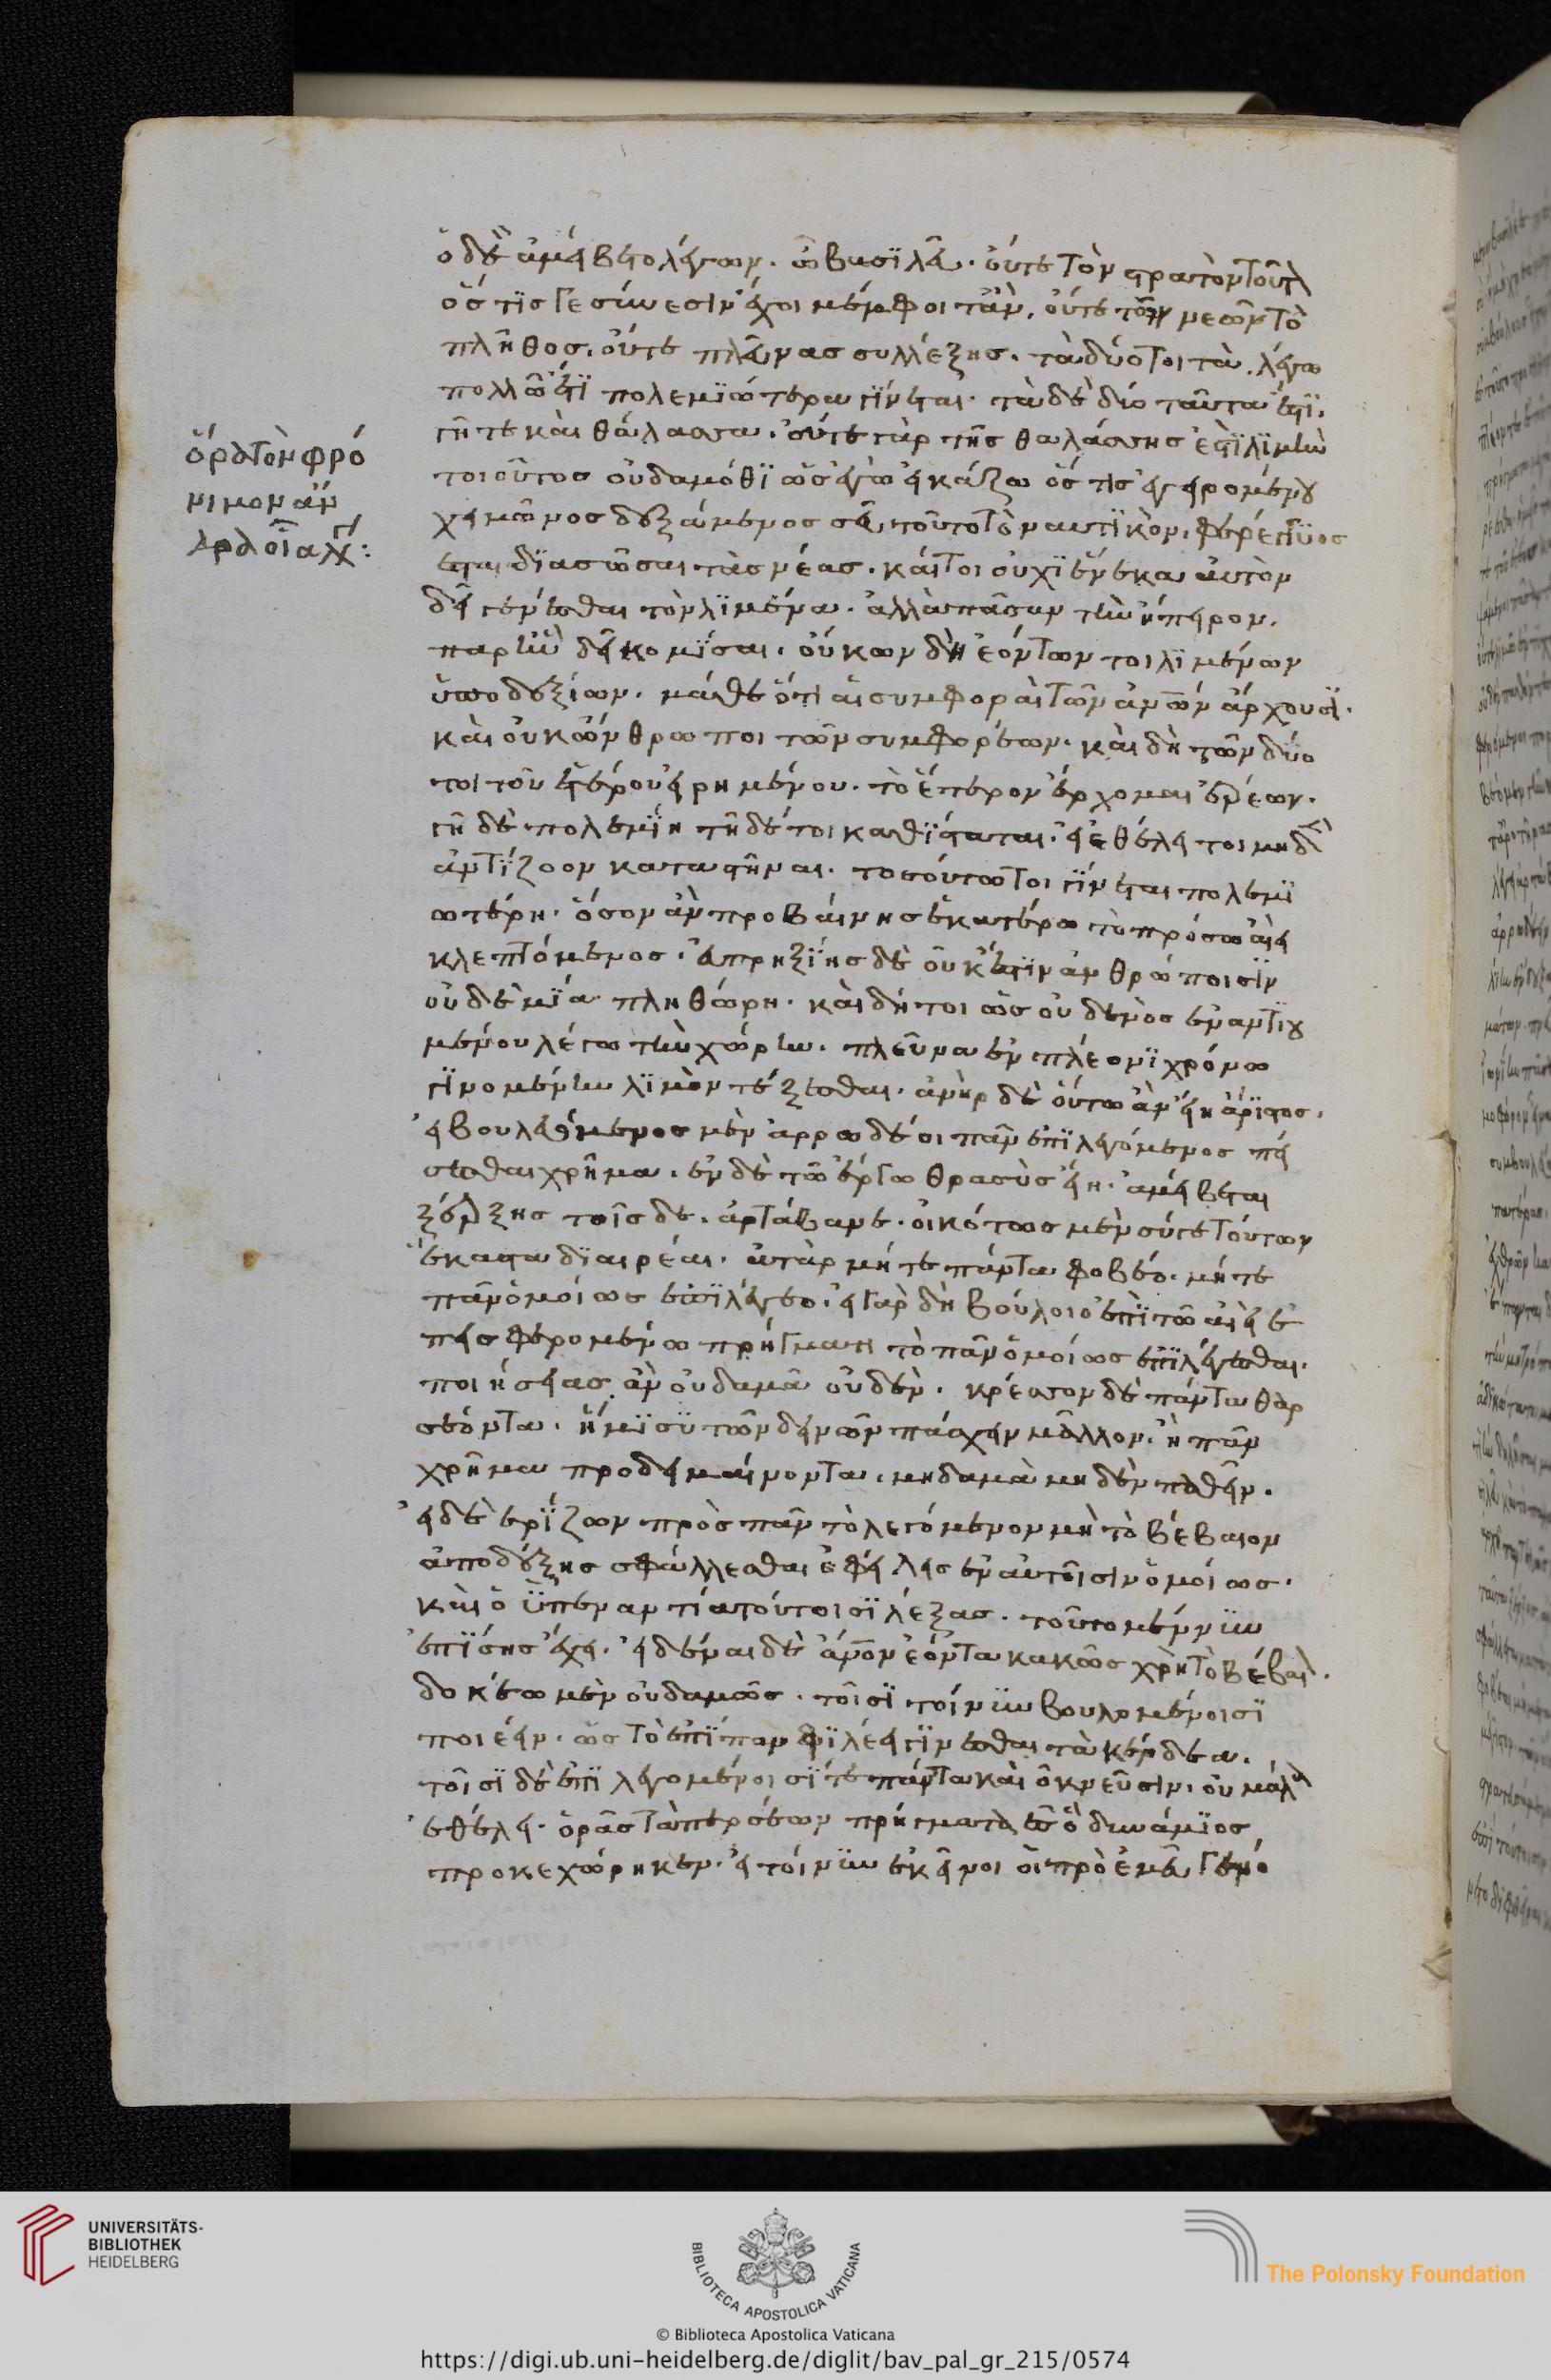 ὁ δὲ ἀμείβετο λέγων. ὦ βασιλεῦ. οὔτε τὸν στρατὸν τοῦτ
ὅστις γε σύνεσιν ἔχοι μέμφοιτ' ἄν. οὔτε τῶν νεῶν τὸ
πλῆθος. οὔτε πλεῦνας συλλέξης. τὰ δύο τοι τὰ λέγω
πολλῶ ἔτι πολεμϊώτερα γίνεται. τὰ δὲ δύο ταῦτα ἐστϊ.
γῆ τε καὶ θάλασσα. οὔτε γὰρ τῆς θαλάσσης ἐστϊ λϊμὴν
τοιοῦτος οὐδαμόθϊ ὡς ἐγὼ εἰκάζω ὅστις ἐγειρομένου
χειμῶνος δεξάμενος σεῦ τοῦτο τὸ ναυτϊκὸν. φερέγγϋος
ἔσται δϊασῶσαι τὰς νέας. καί τοι οὐχϊ ἕνεκα αὐτὸν
δεῖ γενέσθαι τὸν λϊμένα. ἀλλὰ πᾶσαν τὴν ἤπειρον.
παρ' ἣν δεῖ κομϊσαι. οὔκων δὴ ἐόντων τοι λϊμένων
ὑποδεξίων. μάθε ὅτι αἱ συμφοραὶ τῶν ἀνων ἄρχουσϊ.
καὶ οὐκ ὥνθρωποι τῶν συμφορέων. καὶ δὴ τῶν δύο
τοι τοῦ ἑτέρου εἰρημένου. τὸ ἕτερον ἔρχομαι ἐρέων.
γῆ δὲ πολεμΐη τῆ δέ τοι καθΐσταται. εἰ ἐθέλει τοι μηδ
ἀντΐξοον καταστῆναι. τοσούτω τοι γΐνεται πολεμϊ
ωτέρη. ὅσον ἂν προβαίνης ἑκατέρω τὸ πρόσω αἰεὶ
κλεπτόμενος. εὐπρηξΐης δὲ οὐκ ἔστϊν ἀνθρώποισϊν
οὐδεμϊα πληθώρη. καὶ δή τοι ὡς οὐδενὸς ἐναντϊου
μένου λέγω τὴν χώρην. πλεῦνα ἐν πλέονϊ χρόνω
γϊνομένην λϊμὸν τέξεσθαι. ἀνὴρ δὲ οὕτω ἂν εἴη ἄρϊστος.
εἰ βουλευόμενος μὲν ἀρρωδέοι πᾶν ἐπϊλεγόμενος πεί
σεσθαι χρῆμα. ἐν δὲ τῶ ἔργω θρασὺς εἴη. ἀμείβεται
ξέρξης τοῖσδε. ἀρτάβανε. οἰκότως μὲν σύ γε τούτων
ἕκαστα δϊαιρέαι. ἀτὰρ μήτε πάντα φοβέο. μήτε
πᾶν ὁμοίως ἐπϊλέγεο. εἰ γὰρ δὴ βούλοιο ἐπϊ τῶ αἰεὶ ἐ
πεσφερομένω πρήγματι τὸ πᾶν ὁμοίως ἐπϊλέγεσθαι.
ποιήσειας ἂν οὐδαμᾶ οὐδέν. κρέσσον δὲ πάντα θαρ
σέοντα. ἥμϊσϋ τῶν δεινῶν πάσχειν μᾶλλον. ἢ πᾶν
χρῆμα προδειμαίνοντα. μηδαμὰ μηδὲν παθεῖν.
εἰ δὲ ἐρΐζων πρὸς πᾶν τὸ λεγόμενον μὴ τὸ βέβαιον
ἀποδέξης σφάλλεσθαι ὀφείλεις ἐν αὐτοῖσιν ὁμοίως.
καὶ ὁ ὑπεναντία τούτοισϊ λέξας. τοῦτο μέν νϋν
ἐπΐσης ἔχει. εἰδέναι δὲ ἄνον ἐόντα κακῶς χρὴ τὸ βέβαι.
δοκέω μὲν οὐδαμῶς. τοῖσϊ τοίνϋν βουλομένοισϊ
ποιέειν. ὡς τὸ ἐπϊπαν φϊλέει γΐνεσθαι τὰ κέρδεα.
τοῖσϊ δὲ ἐπϊλεγομένοισϊ τε πάντα καὶ ὀκνεῦσιν. οὐ μάλα
ἐθέλει. ὁρᾶς τὰ περσέων πρήγματα ἐς ὃ δυνάμϊος
προκεχώρηκεν. εἰ τοίνϋν ἐκεῖνοι οἱ πρὸ ἐμεῦ γενό
ὅρα τὸν φρό
νιμον ἄν
δρα οἷα λέγ:
UNIVERSITÄTS-
BIBLIOTHEK
HEIDELBERG
BIBLIOTECA APOSTOLICA VATICANA
The Polonsky Foundation
© Biblioteca Apostolica Vaticana
https://digi.ub.uni-heidelberg.de/diglit/bav_pal_gr_215/0574